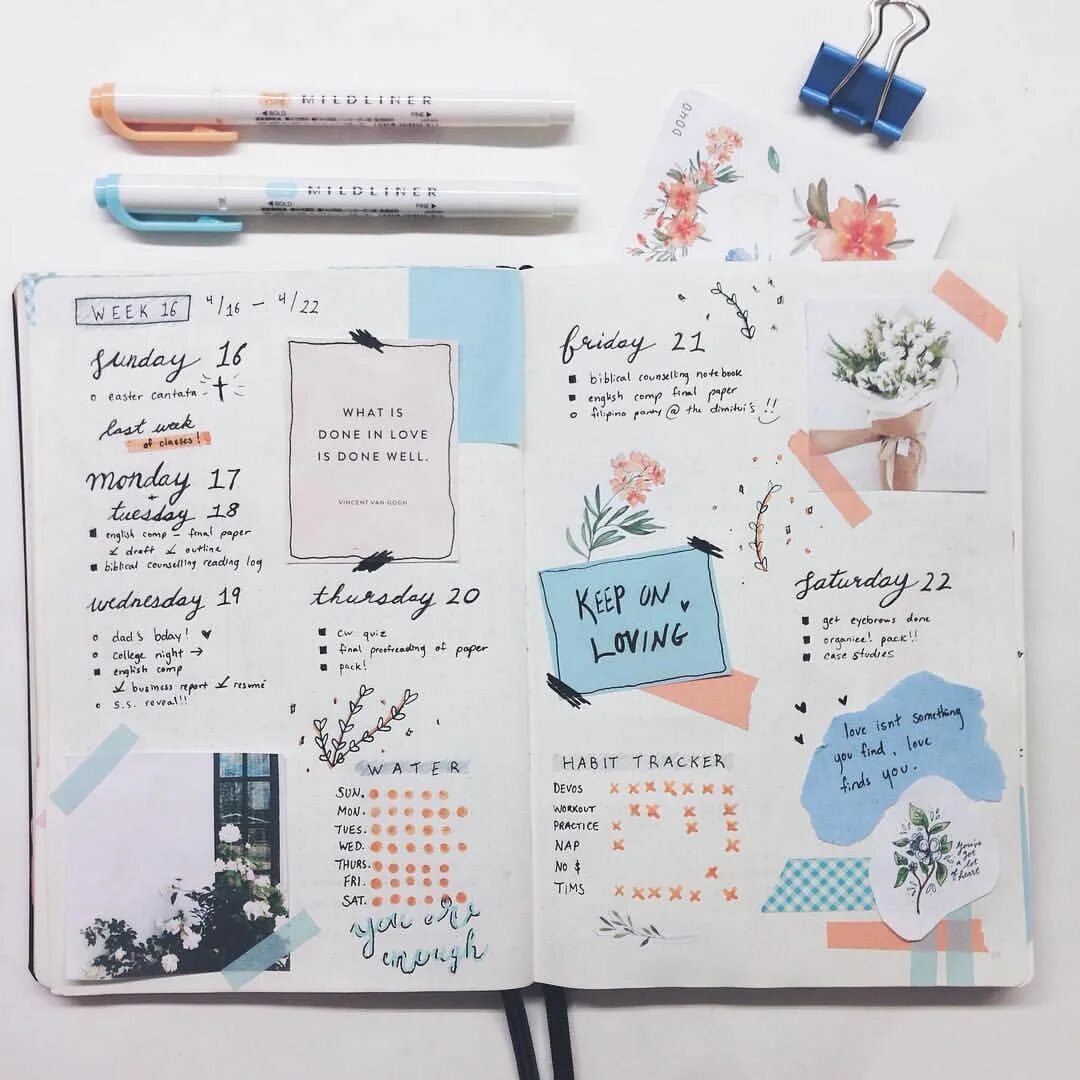 MILDLINER
◀BOLD FINE▶
MILDLINER
◀BOLD FINE▶
D040
WEEK 16 4/16 – 4/22
sunday 16
easter cantata
last week
of classes!
monday 17
+
tuesday 18
english comp – final paper
draft outline
biblical counselling reading log
wednesday 19
dad's bday! ♥
college night →
english comp
business report resumé
s.s. reveal!!
WHAT IS
DONE IN LOVE
IS DONE WELL.
VINCENT VAN GOGH
thursday 20
cw quiz
final proofreading of paper
pack!
WATER
SUN.
MON.
TUES.
WED.
THURS.
FRI.
SAT.
you are
enough
friday 21
biblical counselling notebook
english comp final paper
filipino party @ the dimitui's !!
KEEP ON
LOVING
saturday 22
get eyebrows done
organize! pack!!
case studies
HABIT TRACKER
DEVOS
WORKOUT
PRACTICE
NAP
NO $
TIMS
love isnt something
you find. love
finds you.
You've
got
a lot
of heart